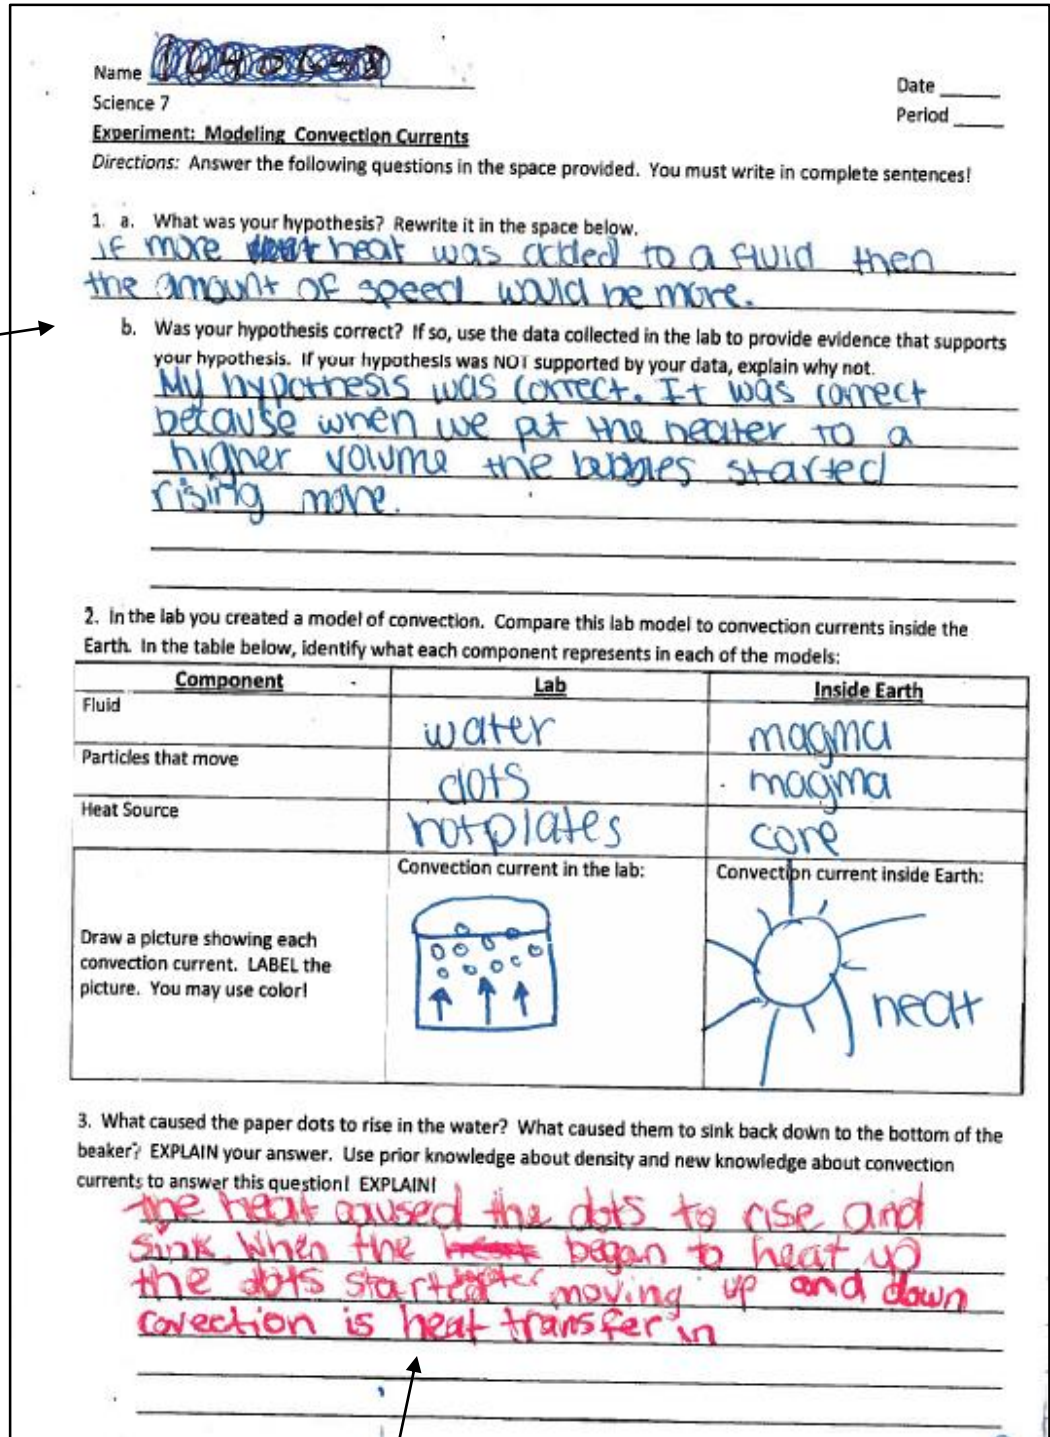 Name
Date
Science 7
Period
Experiment: Modeling Convection Currents
Directions: Answer the following questions in the space provided. You must write in complete sentences!
1. a. What was your hypothesis? Rewrite it in the space below.
If more heat was added to a fluid then
the amount of speed would be more.
b. Was your hypothesis correct? If so, use the data collected in the lab to provide evidence that supports
your hypothesis. If your hypothesis was NOT supported by your data, explain why not.
My hypothesis was correct. It was correct
because when we put the heater to a
higher volume the bubbles started
rising more.
2. In the lab you created a model of convection. Compare this lab model to convection currents inside the
Earth. In the table below, identify what each component represents in each of the models:
Component Lab Inside Earth
Fluid water magma
Particles that move dots magma
Heat Source hotplates core
Convection current in the lab: Convection current inside Earth:
Draw a picture showing each
convection current. LABEL the
picture. You may use color!
heat
3. What caused the paper dots to rise in the water? What caused them to sink back down to the bottom of the
beaker? EXPLAIN your answer. Use prior knowledge about density and new knowledge about convection
currents to answer this question! EXPLAIN!
the heat caused the dots to rise and
sink. When the water began to heat up
the dots started moving up and down
covection is heat transfer in